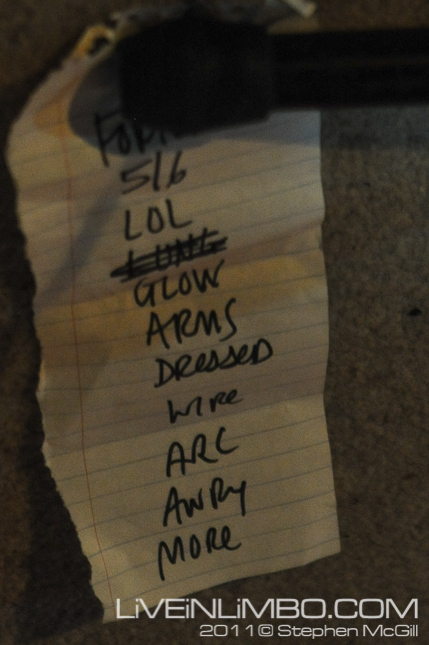 5/6
LOL
LUNG
GLOW
ARMS
DRESSED
WIRE
ARC
AWRY
MORE
LiVEiNLiMBO.COM
2011 © Stephen McGill